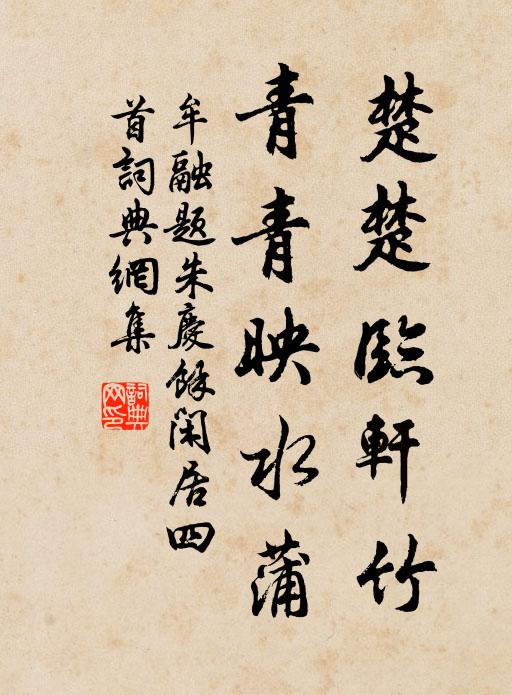 楚楚臨軒竹
青青映水蒲
牟融題朱慶餘閑居四
首詞典網集
詞典
网印